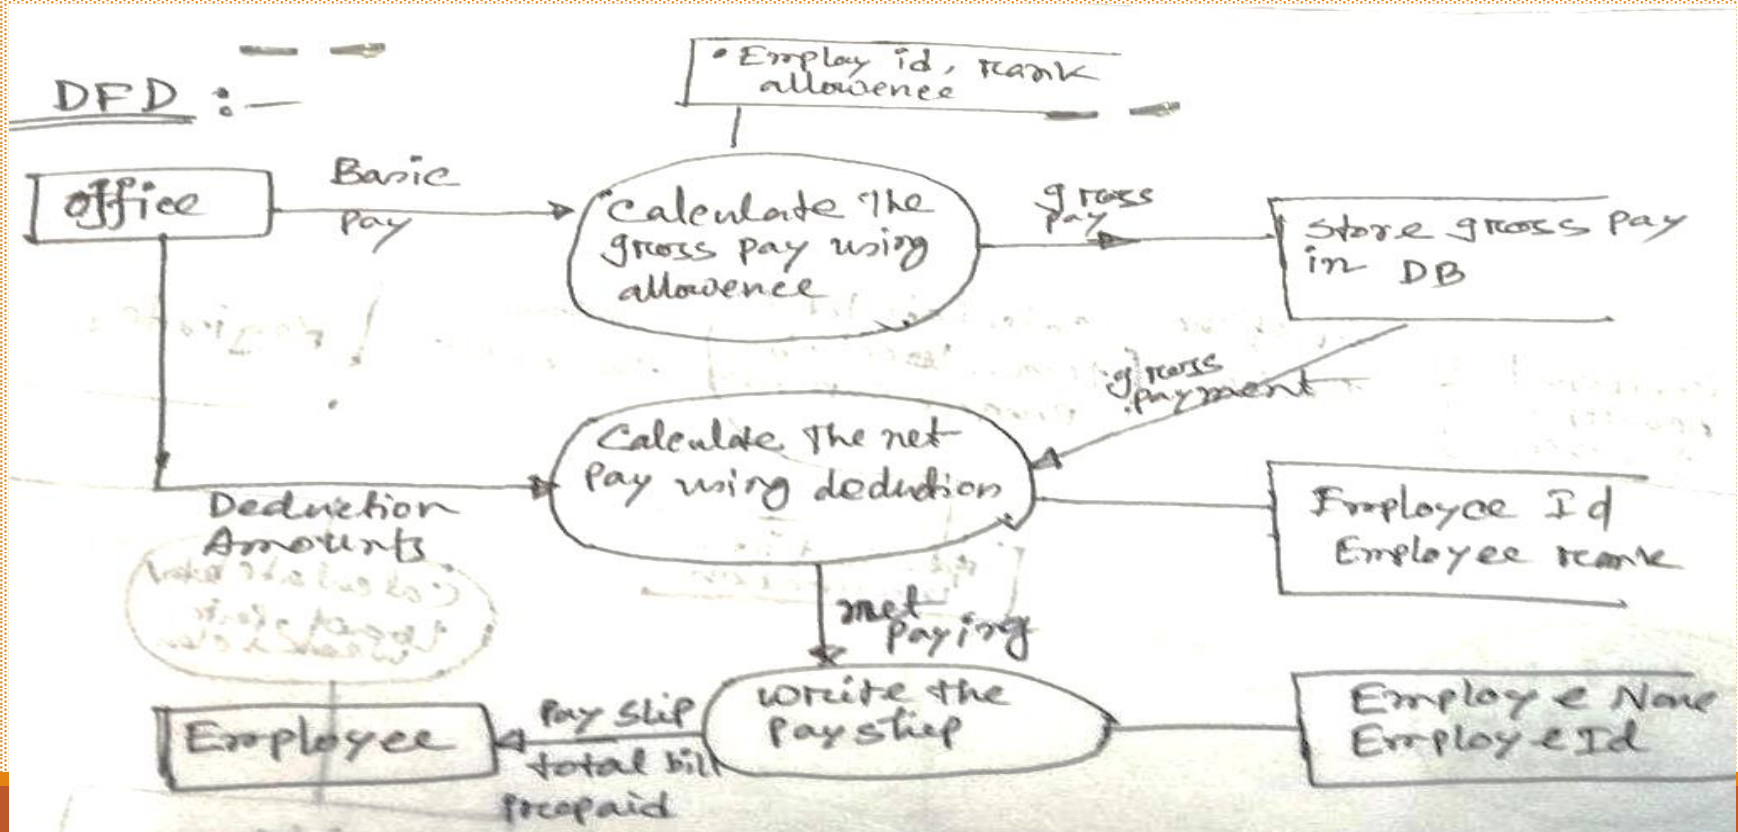 DFD :-
• Employ id, rank
allowence
office
Basic
pay
calculate the
gross pay using
allowence
gross
pay
store gross pay
in DB
gross
payment
Calculate The net
pay using dedution
Deduction
Amounts
Employee Id
Employee rank
net
paying
write the
pay sliep
Employe Name
Employe Id
Employee
Pay slip
total bill
prepaid